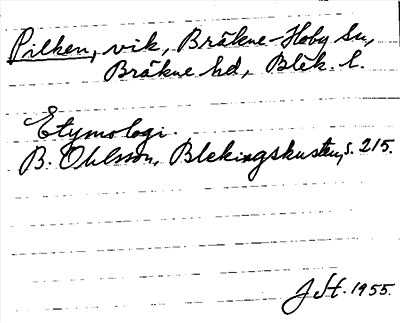 Pilken, vik, Bräkne-Hoby sn,
Bräkne hd, Blek. l.
Etymologi.
B. Ohlsson, Blekingskusten, s. 215.
1955.